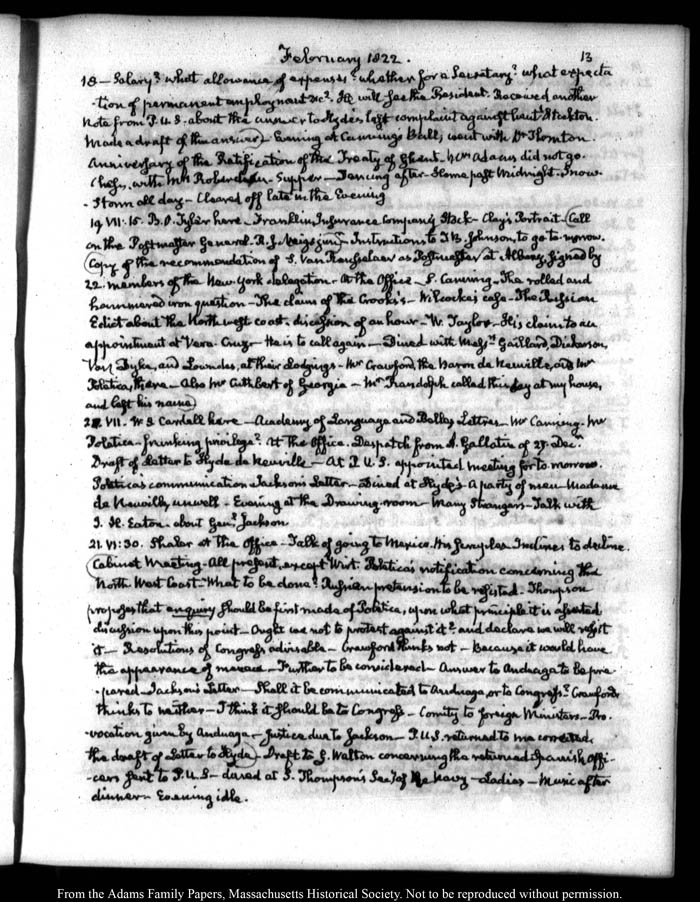 February 1822. 13
18 — Salary? what allowance of expenses? whether for a Secretary? what expecta
-tion of permanent employment &c? He will see the President. Received another
Note from P.U.S. about the answer to Hyde's last complaint against Lieut. Stockton.
Made a draft of the answer — Evening at Canning's Ball; went with Dr Thornton.
Anniversary of the Ratification of the Treaty of Ghent. Mrs Adams did not go.
Chess, with Mr Roberdeau — Supper — Dancing after — Home past Midnight. Snow
-Storm all day — Cleared off late in the Evening
19. VII:15. B. O. Tyler here — Franklin Insurance Company Stock — Clay's Portrait — Call
on the Postmaster General. R. J. Meigs junr — Instructions to J. B. Johnson, to go to-morrow.
Copy of the recommendation of S. Van Rensselaer as Postmaster at Albany, signed by
22 members of the New York delegation. At the Office — S. Canning — The rolled and
hammered iron question — The claim of the Crooks's — Wilcocks's case — The Russian
Edict about the North west coast. discussion of an hour — W. Taylor — His claim to an
appointment at Vera-Cruz — He is to call again — Dined with Messrs Gaillard, Dickerson,
Van Dyke, and Lowndes, at their Lodgings — Mr Crawford, the Baron de Neuville, and Mr
Politica, there — Also Mr Cuthbert of Georgia — Mr Randolph called this day at my house,
and left his name
20. VII. W. S. Cardell here — Academy of Language and Belles Lettres — Mr Canning — Mr
Politica — franking privilege? At the Office. Despatch from A. Gallatin of 27. Decr
Draft of Letter to Hyde de Neuville — At P.U.S. appointed meeting for to morrow.
Politica's communication Jackson's Letter — Dined at Hyde's A party of men — Madame
de Neuville, unwell — Evening at the Drawing-room — Many Strangers — Talk with
J. H. Eaton. about Genl Jackson.
21. VI:30. Shaler at the Office — Talk of going to Mexico. Inclines to decline.
Cabinet Meeting — All present, except Wirt. Politica's notification concerning the
North West Coast — What to be done? Russian pretension to be resisted. Thompson
proposes that enquiry should be first made of Politica, upon what principle it is asserted
discussion upon this point — Ought we not to protest against it? and declare we will resist
it — Resolutions of Congress advisable — Crawford thinks not — because it would have
the appearance of menace — Further to be considered — Answer to Anduaga to be pre
-pared — Jackson's Letter — Shall it be communicated to Anduaga, or to Congress? Crawford
thinks to neither — I think it should be to Congress — Comity to foreign Ministers — Pro
-vocation given by Anduaga — Justice due to Jackson — P.U.S. returned to me corrected
the draft of Letter to Hyde — Draft to G. Walton concerning the returned Spanish Offi
-cers sent to P.U.S — dined at S. Thompson's Secy of the Navy — Ladies — Music after
dinner — Evening idle.
From the Adams Family Papers, Massachusetts Historical Society. Not to be reproduced without permission.